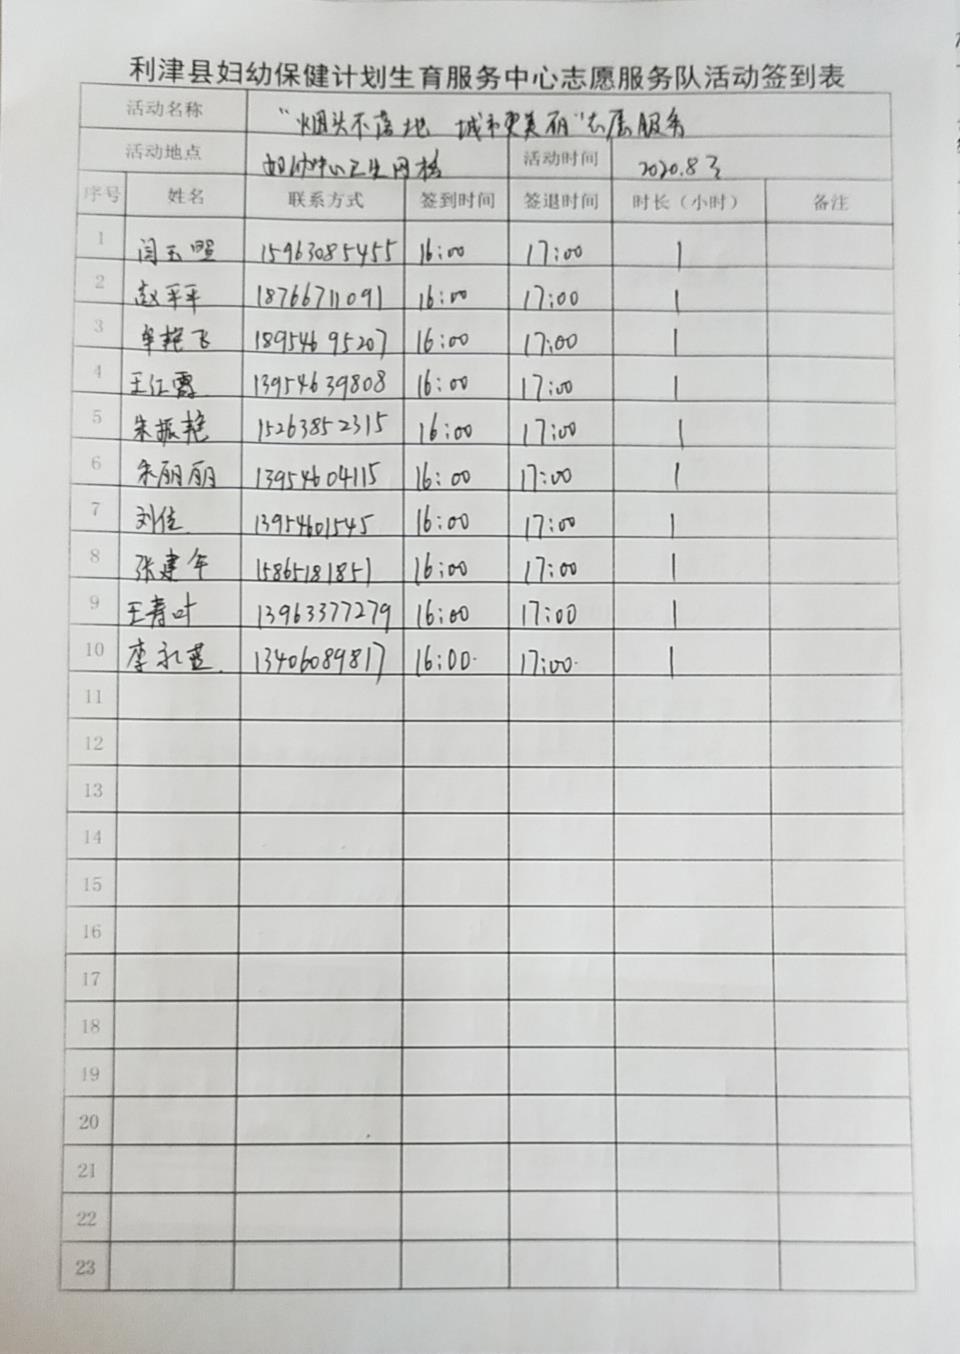 利津县妇幼保健计划生育服务中心志愿服务队活动签到表
活动名称 "烟头不落地 城市更美丽"志愿服务
活动地点 妇幼中心卫生网格 活动时间 2020.8.3
序号 姓名 联系方式 签到时间 签退时间 时长（小时） 备注
1 闫玉照 15963085455 16:00 17:00 1
2 赵平平 18766711091 16:00 17:00 1
3 牟艳飞 18954695207 16:00 17:00 1
4 王江霞 13954639808 16:00 17:00 1
5 朱振艳 15263852315 16:00 17:00 1
6 朱丽丽 13954604115 16:00 17:00 1
7 刘佳 13954601545 16:00 17:00 1
8 张建军 15865181851 16:00 17:00 1
9 王春叶 13963377279 16:00 17:00 1
10 李永 13406089817 16:00 17:00 1
11
12
13
14
15
16
17
18
19
20
21
22
23